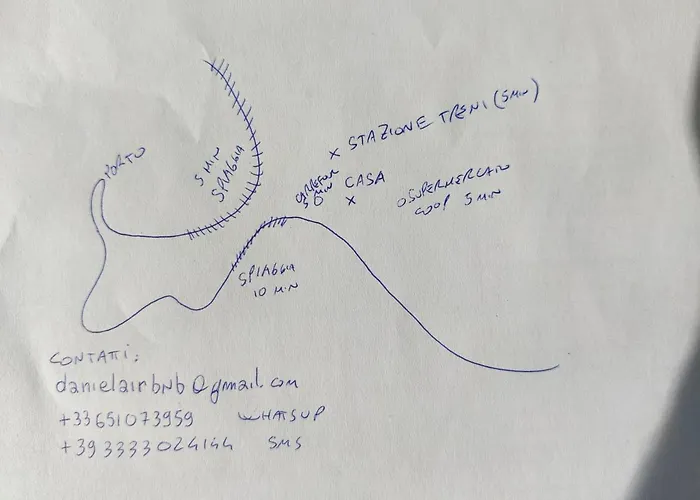 PORTO
5 MIN
SPIAGGIA
X STAZIONE TRENI (5 MIN)
CARREFOUR
5 MIN
CASA
X
SUPERMERCATO
COOP 5 MIN
SPIAGGIA
10 MIN
CONTATTI:
danielairbnb@gmail.com
+33651073959 WHATSUP
+39 3333024144 SMS